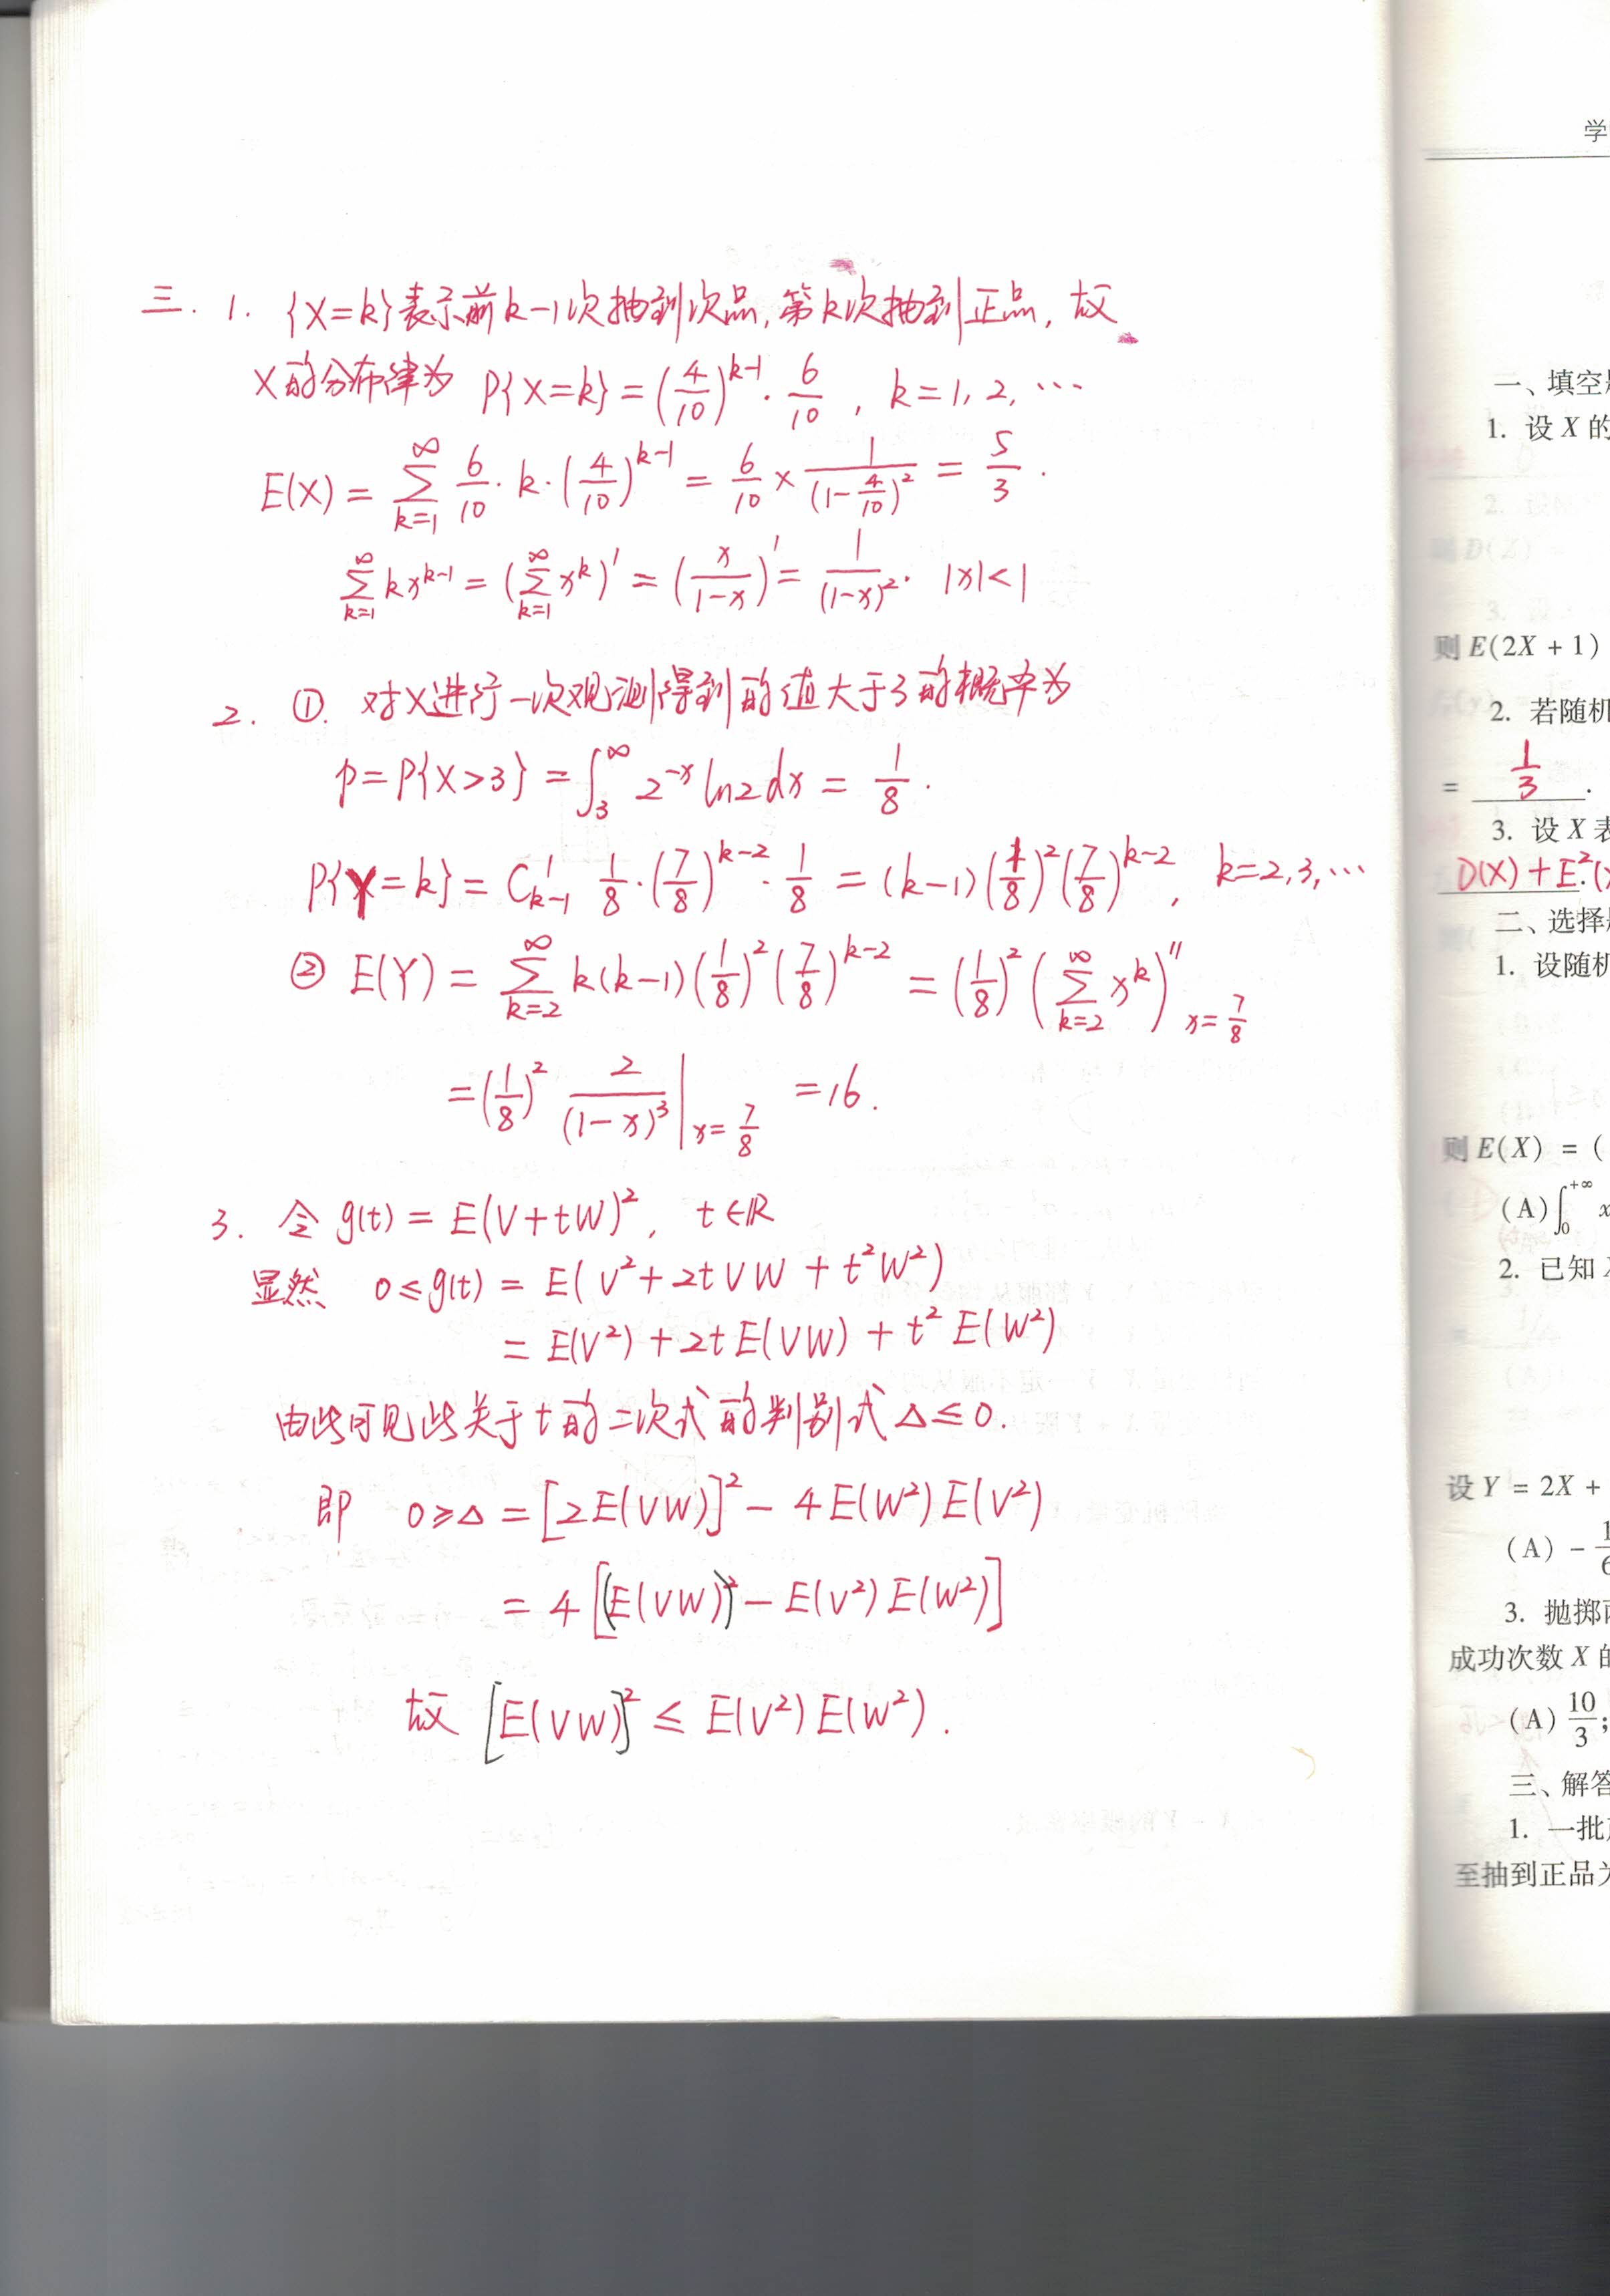 三. 1. {X=k}表示前k-1次抽到次品,第k次抽到正品,故
X的分布律为 P{X=k} = (4/10)^(k-1) · 6/10 , k=1, 2, ⋯
E(X) = ∑_{k=1}^∞ 6/10 · k · (4/10)^(k-1) = 6/10 × 1/(1-4/10)^2 = 5/3 .
∑_{k=1}^∞ kx^(k-1) = (∑_{k=1}^∞ x^k)' = (x/(1-x))' = 1/(1-x)^2 . |x|<1
2. ①. 对X进行一次观测得到的值大于3的概率为
p=P{X>3} = ∫_3^∞ 2^(-x) ln2 dx = 1/8 .
P{Y=k} = C_{k-1}^1 1/8 · (7/8)^(k-2) · 1/8 = (k-1)(1/8)^2 (7/8)^(k-2) , k=2,3,⋯
② E(Y) = ∑_{k=2}^∞ k(k-1)(1/8)^2 (7/8)^(k-2) = (1/8)^2 (∑_{k=2}^∞ x^k)''_{x=7/8}
= (1/8)^2 2/(1-x)^3 |_{x=7/8} = 16 .
3. 令 g(t) = E(V+tW)^2, t∈R
显然 0≤g(t) = E(V^2+2tVW+t^2W^2)
= E(V^2)+2tE(VW)+t^2E(W^2)
由此可见此关于t的二次式的判别式 Δ≤0.
即 0≥Δ = [2E(VW)]^2 - 4E(W^2)E(V^2)
= 4[(E(VW))^2 - E(V^2)E(W^2)]
故 [E(VW)]^2 ≤ E(V^2)E(W^2) .
学
一、填空
1. 设 X 的
则 E(2X + 1)
2. 若随机
= 1/3 .
3. 设 X 表
D(X)+E^2(
二、选择
1. 设随机
则 E(X) = (
(A) ∫_0^{+∞} x
2. 已知
设 Y = 2X +
(A) - 1/6
3. 抛掷
成功次数 X 的
(A) 10/3 ;
三、解答
1. 一批
至抽到正品为